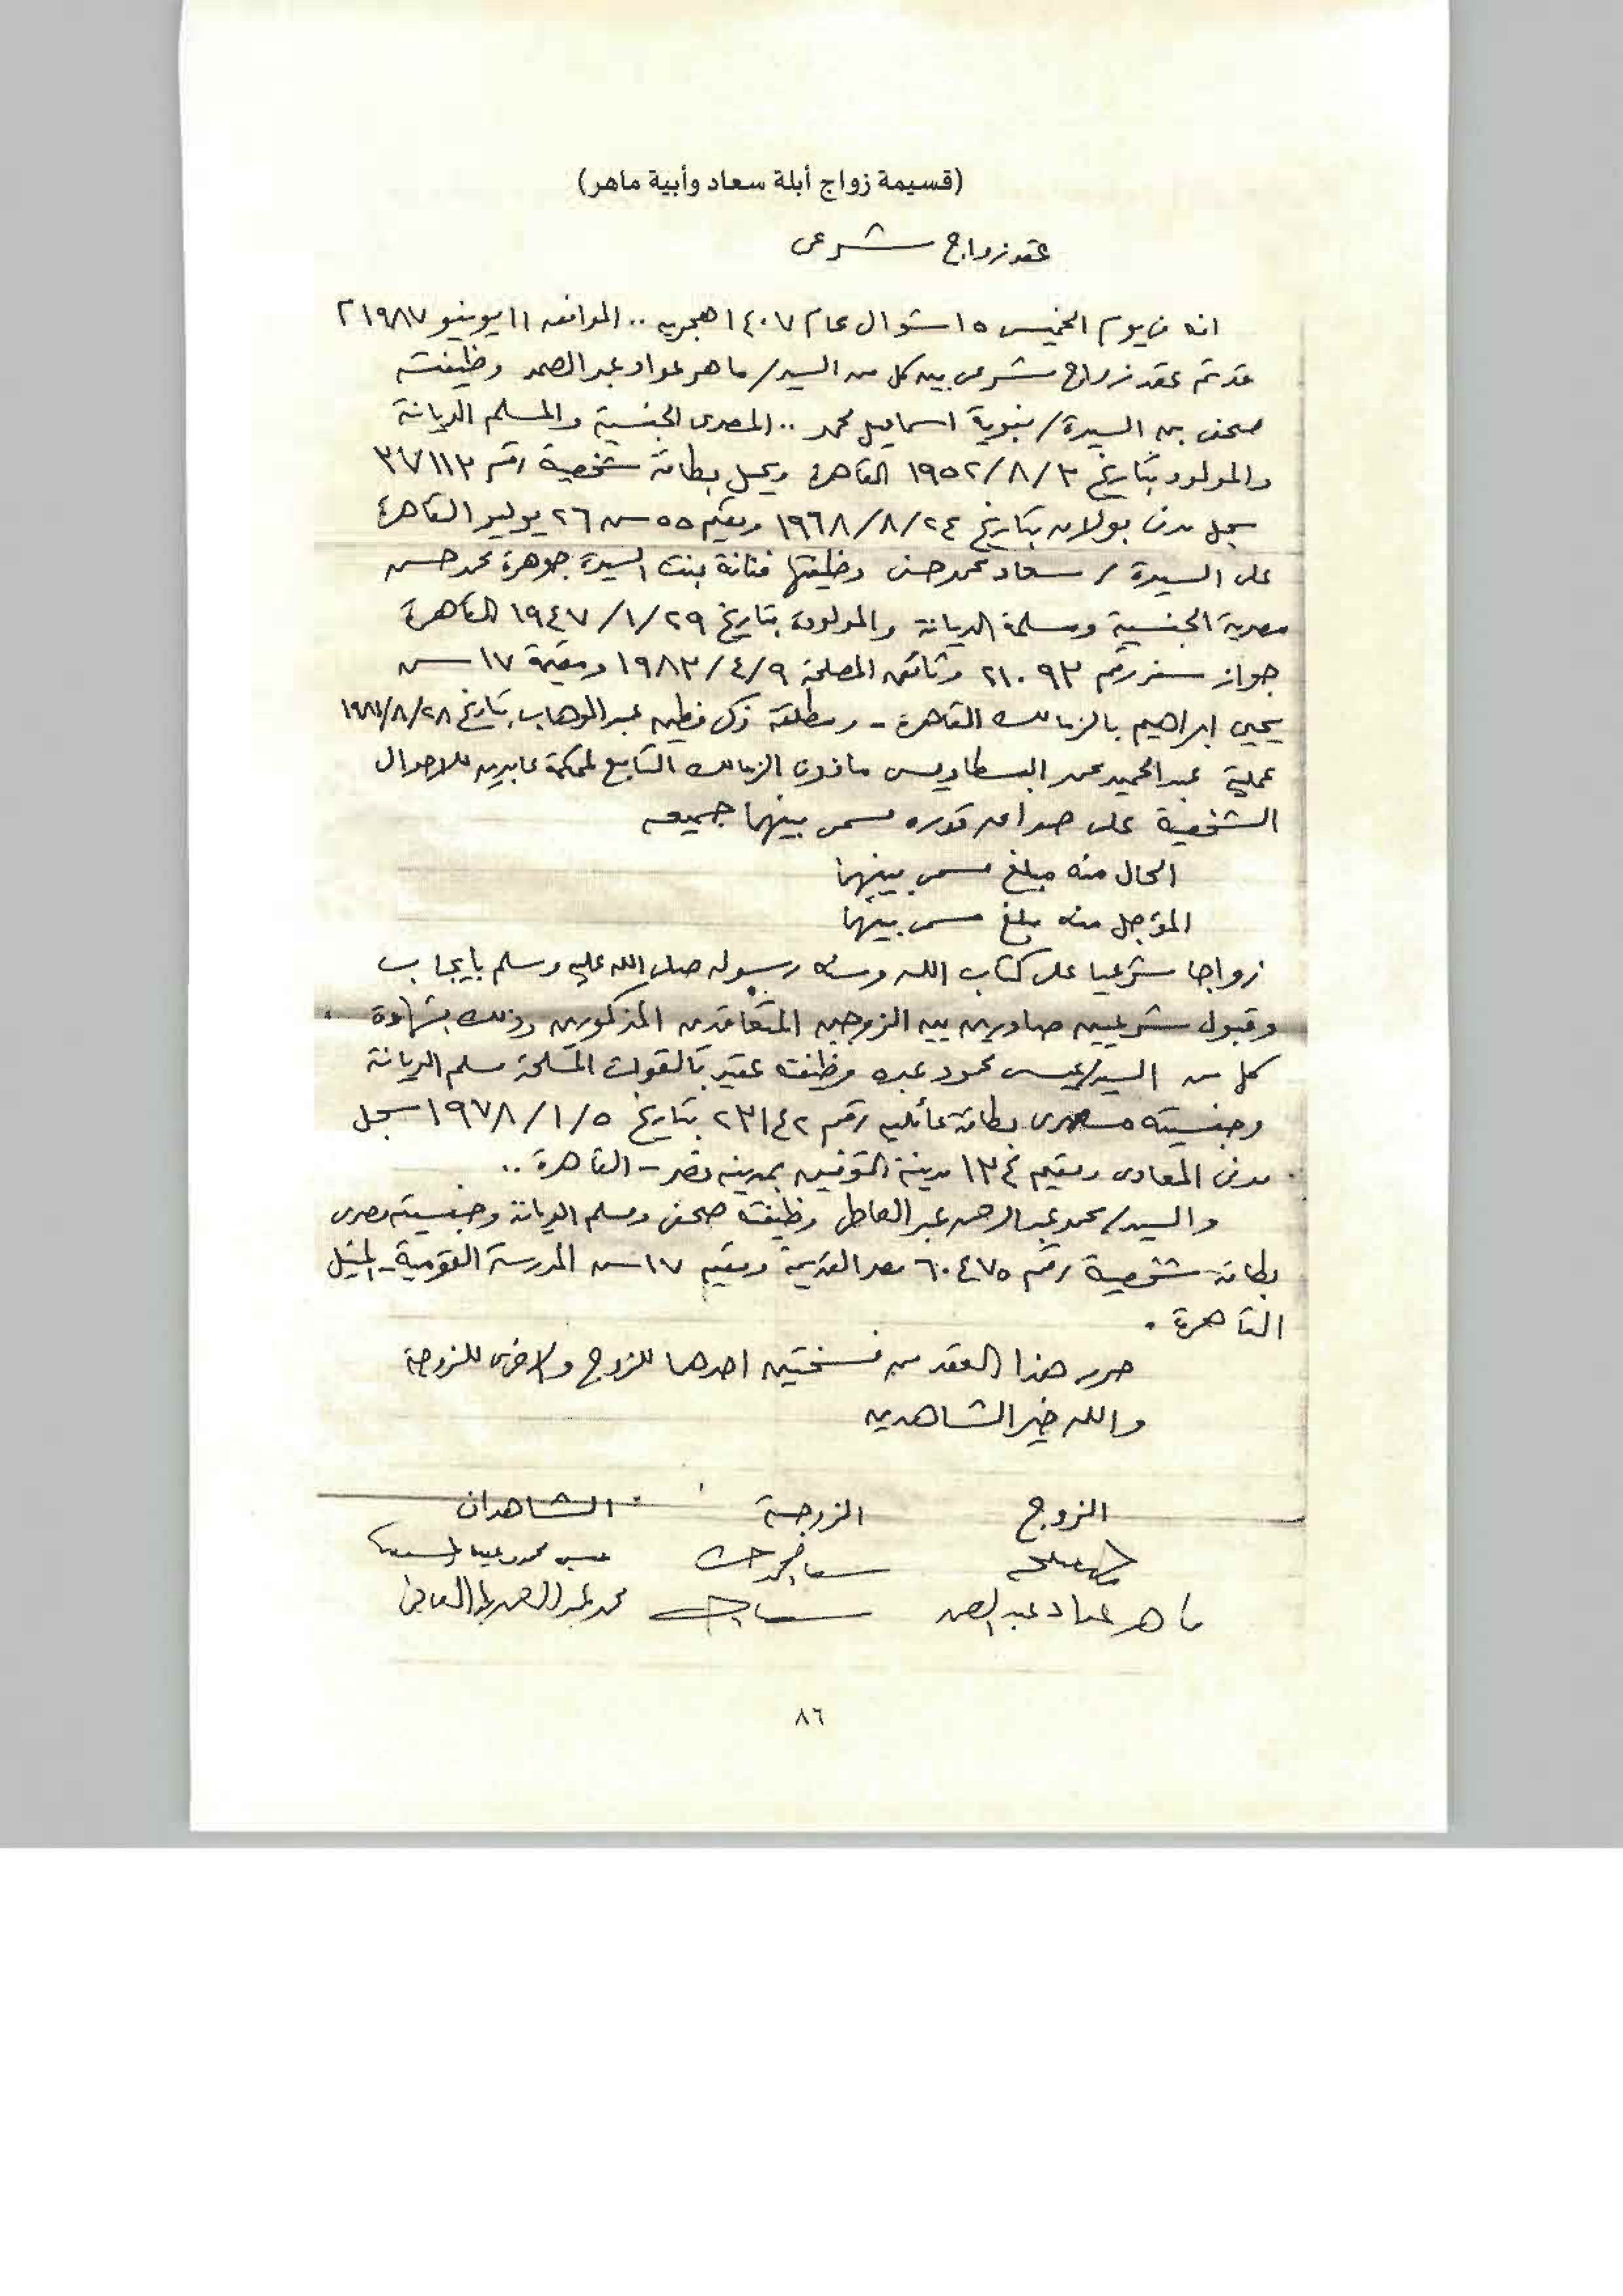 (قسيمة زواج أبلة سعاد وأبية ماهر)
عقد زواج شرعى
انه فى يوم الخميس ١٥ شوال عام ١٤٠٧ هجريه .. الموافق ١١ يونيو ١٩٨٧ م
قد تم عقد زواج شرعى بين كل من السيد / ماهر عواد عبد الصمد وظيفته
صحفى بن السيدة / نبوية اسماعيل محمد .. المصرى الجنسية والمسلم الديانة
والمولود بتاريخ ١٩٥٢/٨/٣ القاهرة ويحمل بطاقة شخصية رقم ٣٧١١٣
سجل مدنى بولاق بتاريخ ١٩٦٨/٨/٢٤ ومقيم ٥٥ ش ٢٦ يوليو القاهرة
على السيدة / سعاد محمد حسنى وظيفتها فنانة بنت السيدة جوهرة محمد حسن
مصرية الجنسية ومسلمة الديانة والمولودة بتاريخ ١٩٤٧/١/٢٩ القاهرة
جواز سفر رقم ٢١٠٩٣ وثائق المصلحة ١٩٨٣/٤/٩ ومقيمة ١٧ ش
يحيى ابراهيم بالزمالك القاهرة - ومطلقة زكى فطين عبد الوهاب بتاريخ ١٩٨١/٨/٢٨
عملية عبد الحميد محمد مأذون الزمالك التابع لمحكمة عابدين للاحوال
الشخصية على صداق قدره مسمى بينهما جميعه
الحال منه مبلغ مسمى بينهما
المؤجل منه مبلغ مسمى بينهما
زواجا شرعيا على كتاب الله وسنه رسوله صلى الله عليه وسلم بايجاب
وقبول شرعيين صادرين بين الزوجين المتعاقدين المذكورين وذلك بشهادة
كل من السيد / عيسى محمود عبده وظيفته عقيد بالقوات المسلحة مسلم الديانة
وجنسيته مصرى بطاقة عائليه رقم ٢٣١٤٢ بتاريخ ١٩٧٨/١/٥ سجل
مدنى المعادى ومقيم ١٣٤ مدينة التوفيق بمدينه نصر - القاهرة ..
والسيد / محمد عبد الرحمن عبد العاطى وظيفته صحفى ومسلم الديانة وجنسيته مصرى
بطاقة شخصية رقم ٦٠٤٧٥ مصر القديمة ومقيم ١٧ ش المدرسة القومية - المنيل
القاهرة .
حرر هذا العقد من نسختين احدهما للزوج والاخرى للزوجة
والله خير الشاهدين
الزوج الزوجة الشاهدان
سعاد محمد حسنى
ماهر عواد عبد الصمد سعاد
٨٦